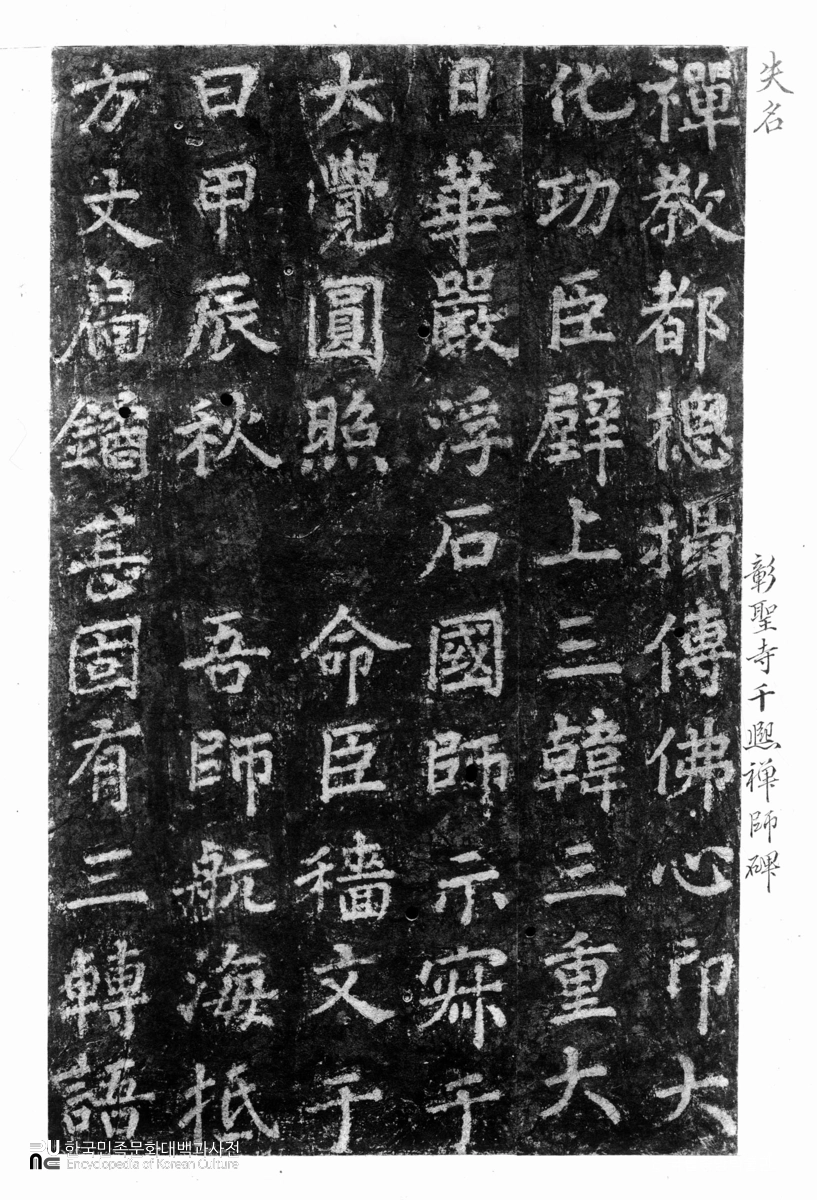 失名
彰聖寺千熙禅師碑
禪教都緫攝傳佛心印大
化功臣壁上三韓三重大
日華嚴浮石國師示寂于
大覺圓照 命臣穡文于
曰甲辰秋 吾師航海抵
方丈扃鐍甚固有三轉語
한국민족문화대백과사전
Encyclopedia of Korean Culture